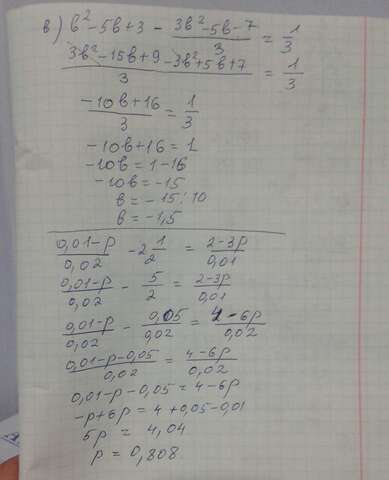 в) b² - 5b + 3 - (3b² - 5b - 7)/3 = 1/3
(3b² - 15b + 9 - 3b² + 5b + 7)/3 = 1/3
(-10b + 16)/3 = 1/3
-10b + 16 = 1
-10b = 1 - 16
-10b = -15
b = -15 : 10
b = -1,5
(0,01 - p)/0,02 - 2 1/2 = (2 - 3p)/0,01
(0,01 - p)/0,02 - 5/2 = (2 - 3p)/0,01
(0,01 - p)/0,02 - 0,05/0,02 = (4 - 6p)/0,02
(0,01 - p - 0,05)/0,02 = (4 - 6p)/0,02
0,01 - p - 0,05 = 4 - 6p
-p + 6p = 4 + 0,05 - 0,01
5p = 4,04
p = 0,808